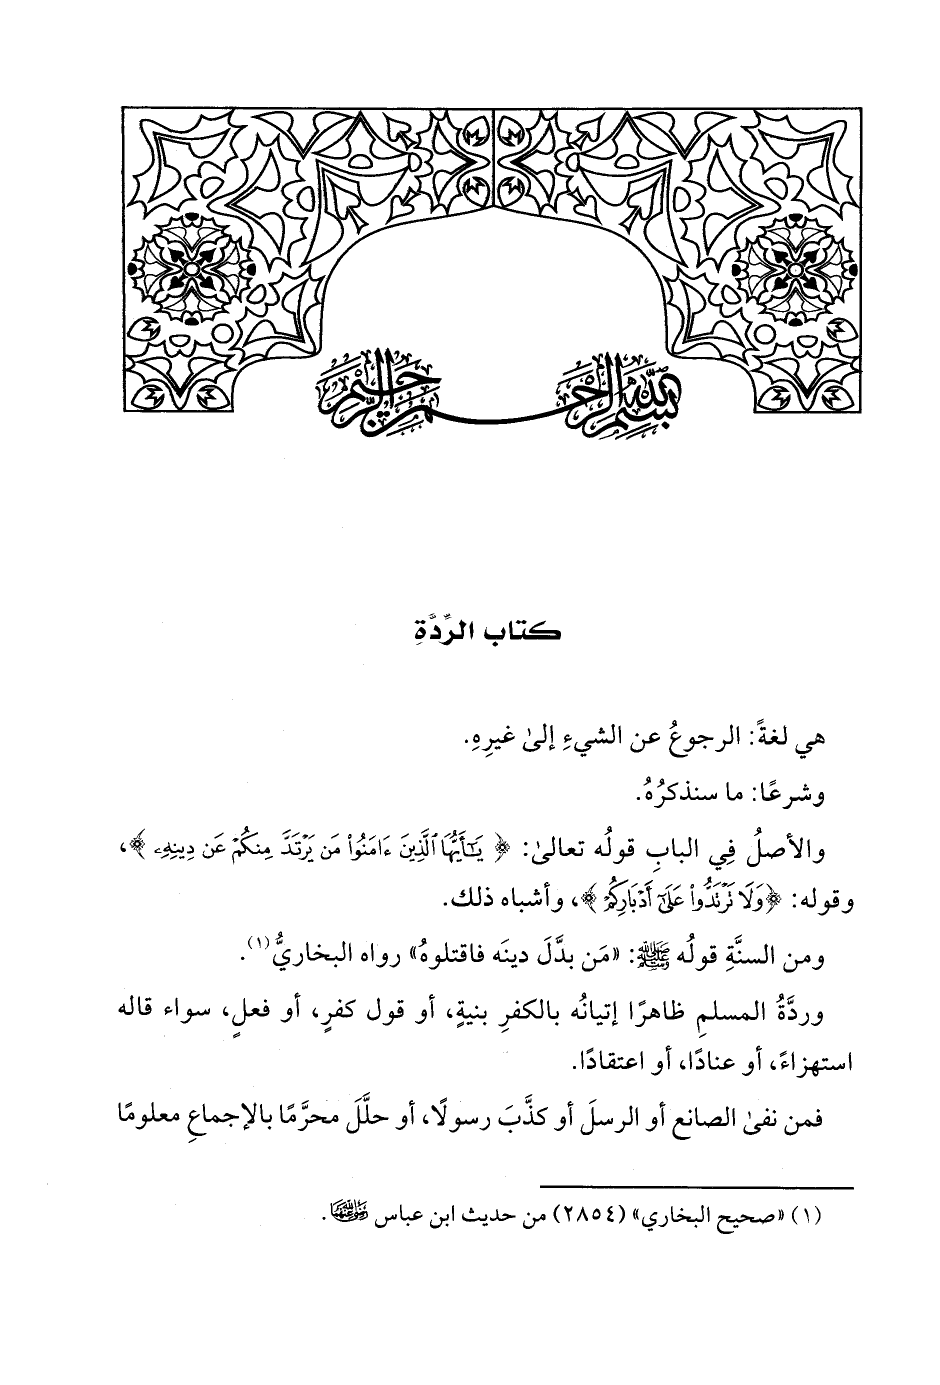 بسم الله الرحمن الرحيم
كتاب الرِّدَّةِ
هي لغةً: الرجوعُ عن الشيءِ إلىٰ غيرِهِ.
وشرعًا: ما سنذكرُهُ.
والأصلُ فِي البابِ قولُه تعالىٰ: ﴿يَـٰٓأَيُّهَا ٱلَّذِينَ ءَامَنُوا۟ مَن يَرْتَدَّ مِنكُمْ عَن دِينِهِۦ﴾،
وقوله: ﴿وَلَا تَرْتَدُّوا۟ عَلَىٰٓ أَدْبَارِكُمْ﴾، وأشباه ذلك.
ومن السنَّةِ قولُه ﷺ: «مَن بدَّلَ دينَه فاقتلوهُ» رواه البخاريُّ(١).
وردَّةُ المسلمِ ظاهرًا إتيانُه بالكفرِ بنيةٍ، أو قول كفرٍ، أو فعلٍ، سواء قاله
استهزاءً، أو عنادًا، أو اعتقادًا.
فمن نفىٰ الصانع أو الرسلَ أو كذَّبَ رسولًا، أو حلَّلَ محرَّمًا بالإجماعِ معلومًا
(١) «صحيح البخاري» (٢٨٥٤) من حديث ابن عباس رضي الله عنهما.